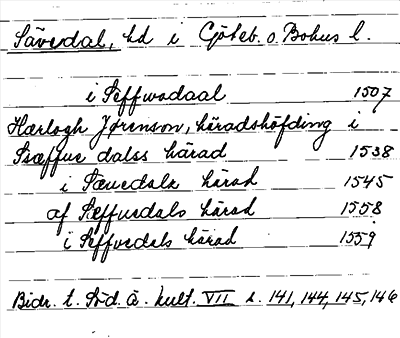 Sävedal, hd i Göteb. o. Bohus l.
i Seffwadaal 1507
Herlogh Jørenson, häradshöfding i
Sæffue dalss härad 1538
i Sæuedals härad 1545
af Sæffuedals härad 1558
i Seffuedals härad 1559
Bidr. t. Söd. å. kult. VII s. 141, 144, 145, 146